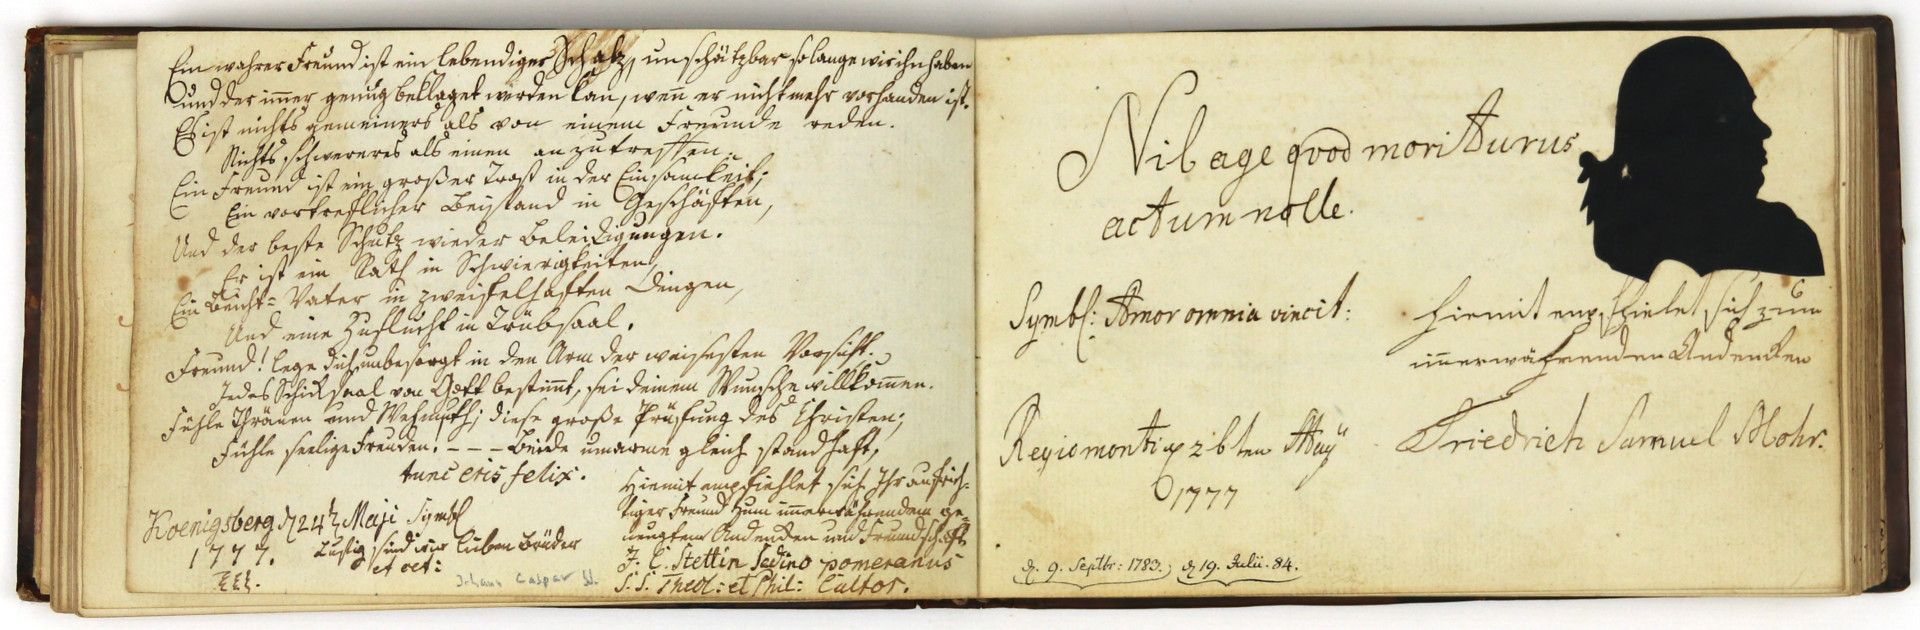 Ein wahrer Freund ist ein lebendiger Schatz, unschätzbar so lange wir ihn haben
und der im̅er genug beklaget werden kan, wen̅ er nicht mehr vorhanden ist.
Es ist nichts gemeiners als von einem Freunde reden.
Nichts schwereres als einen anzutreffen.
Ein Freund ist ein großer Trost in der Einsamkeit;
Ein vortreflicher Beystand in Geschäfften,
Und der beste Schutz wieder Beleidigungen.
Er ist ein Rath in Schwierigkeiten,
Ein Beicht-Vater in zweifelhafften Dingen,
Und eine Zuflucht in Trübsaal.
Freund! lege dich unbesorgt in den Arm der weisesten Vorsicht.
Jedes Schicksaal von Gott bestim̅t, sei deinem Wunsche willkom̅en.
Fühle Thränen und Wehmuth; diese große Prüfung des Christen;
Fühle seelige Freuden. – – – Beide umarme gleich standhaft,
tunc eris felix.
Koenigsberg d 24t Maji
1777.
Symbl
Lustig sind wir lieben Brüder
et cet:
Hiemit empfiehlet sich Ihr aufrich-
tiger Freund zum im̅erwährendem ge-
neugtem Andenken und Freundschaft
J. C. Stettin Sedino pomeranus
S. S. Theol: et Phil: Cultor.
Johann Caspar St.
Nil age qvod moriturus
actum nolle.
Symbl: Amor omnia vincit:
Hiemit empfielet sich zum
im̅erwährenden Andencken
Regiomonti 26ten May
1777
Friedrich Samuel Mohr.
d. 9. Septbr: 1783. d 19. Julii. 84.